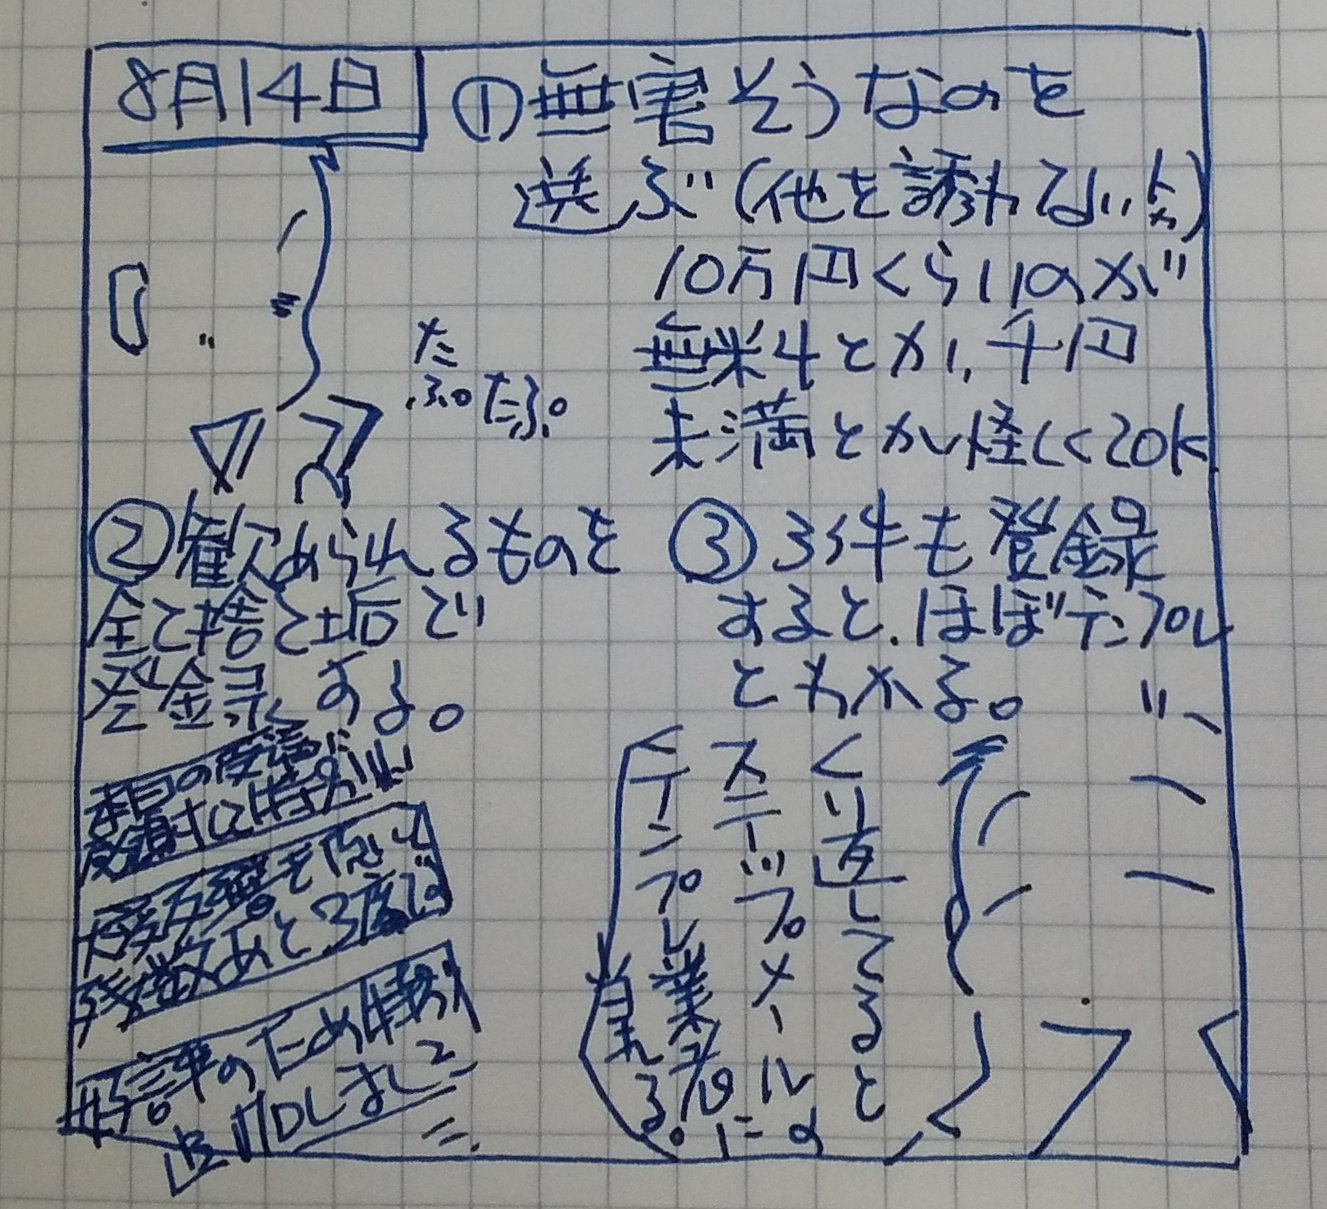 8月14日
①無害そうなのを
選ぶ(他を誘わない為)
10万円くらいのが
無料とか、千円
未満とか怪しくてOK
たぷ
たぷ
②勧められるものを
全て捨て垢で
登録する。
本日の受講が
感謝して特別
大変反響を頂いて
残数あと3度で
好評のため特別
追加しました
③3件も登録
すると、ほぼテンプレ
とわかる。
くり返してると
ステップメールの
テンプレ業者に
見れる。